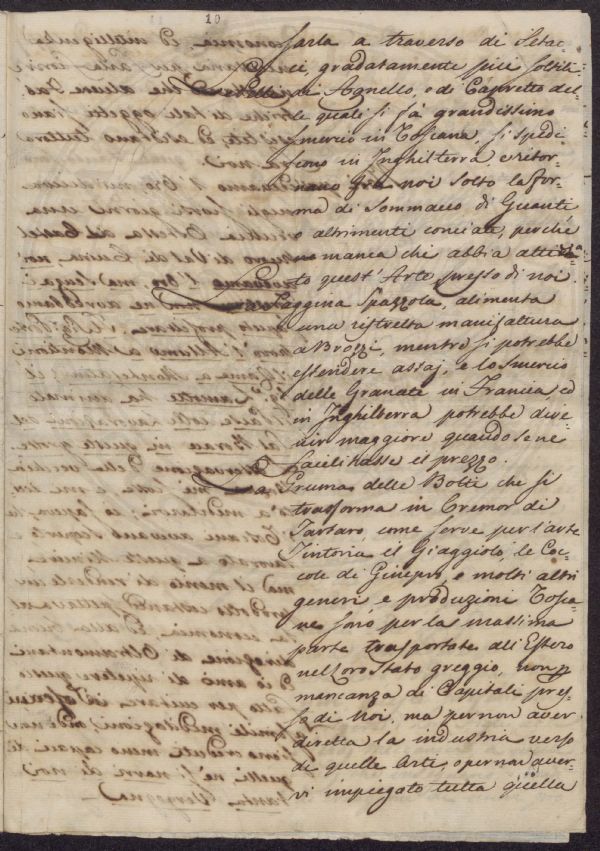 10
farla a traverso di Setac-
ci, gradatamente più sottili.
Le Pelli di Agnello, o di Capretto del-
le quali si fà grandissimo
smercio in Toscana, si spedi-
scono in Inghilterra e ritor-
nano frà noi sotto la for-
ma di Sommacco di Guanti
o altrimenti conciate, perchè
manca chi abbia attiva-
to quest' Arte presso di noi.
La Saggina Spazzola, alimenta
una ristretta manifattura
a Brozzi, mentre si potrebbe
estendere assaj, e lo smercio
delle Granate in Francia, ed
in Inghilterra potrebbe dive-
nir maggiore quando se ne
facilitasse il prezzo.
La Gruma delle Botti che si
trasforma in Cremor di
Tartaro, come serve per l'arte
Tintoria, il Giaggiolo, le Coc-
cole di Ginepro, e molti altri
generi, e produzioni Tosca-
ne sono per la massima
parte trasportate all'Estero
nel loro stato greggio, non p
mancanza di Capitali pres-
so di Noi, ma per non aver
diretta la industria verso
di quelle Arti, o per non aver-
vi impiegato tutta quella